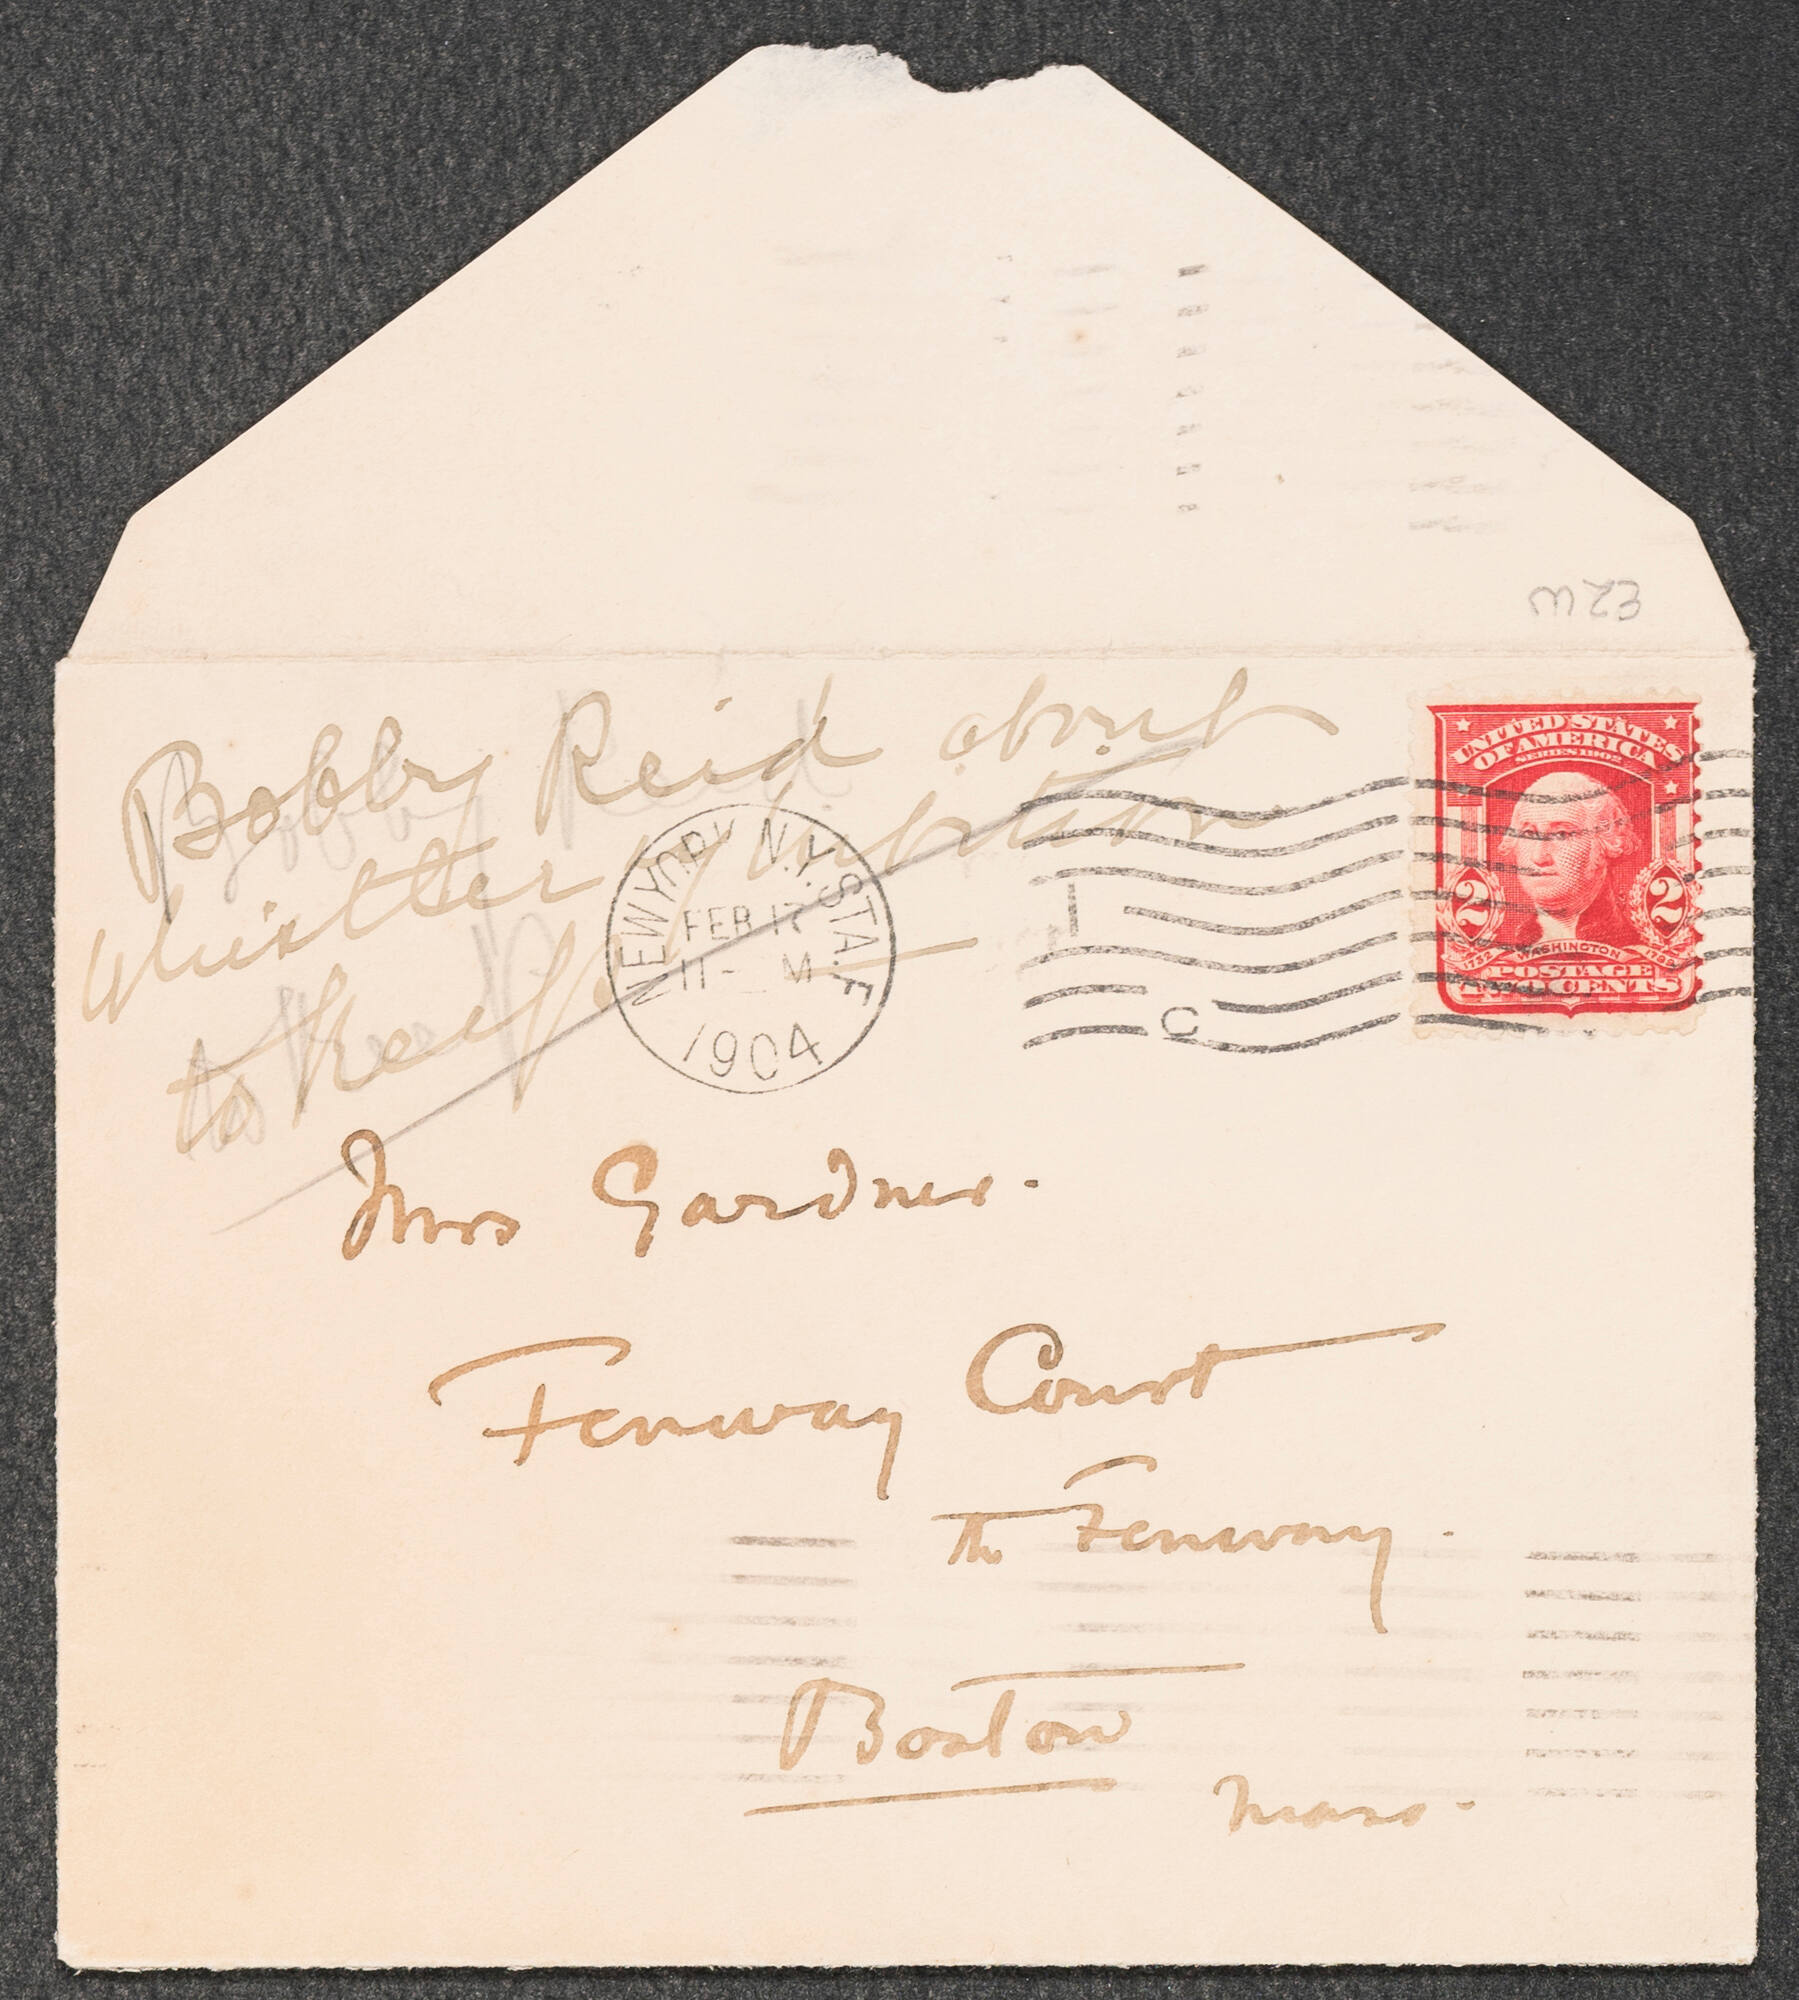 Bobby Reid about
Whistler exhibition
to keep
Bobby Reid
to Keep
NEW YORK, N.Y. STA. F
FEB 17
11- M
1904
1
C
UNITED STATES
OF AMERICA
SERIES 1902
2 2
1732 WASHINGTON 1799
POSTAGE
TWO CENTS
Mrs Gardner.
Fenway Court
The Fenway.
Boston
Mass.